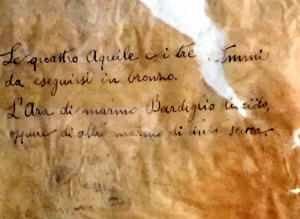 Le quattro Aquile e i tre
da eseguirsi in bronzo.
L'Ara di marmo Bardiglio
oppure di altro marmo di tinta scura.